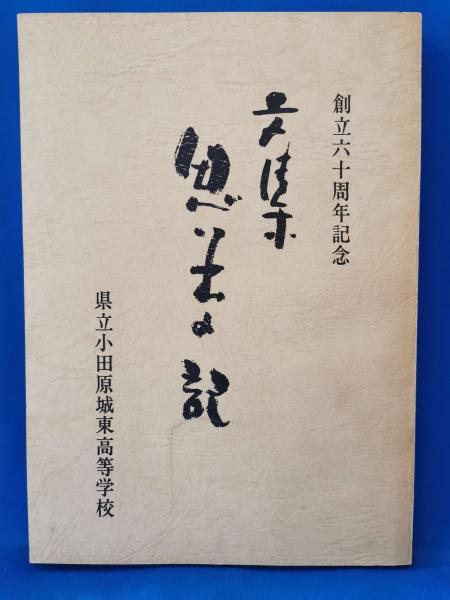 創立六十周年記念
文集
思善の記
県立小田原城東高等学校